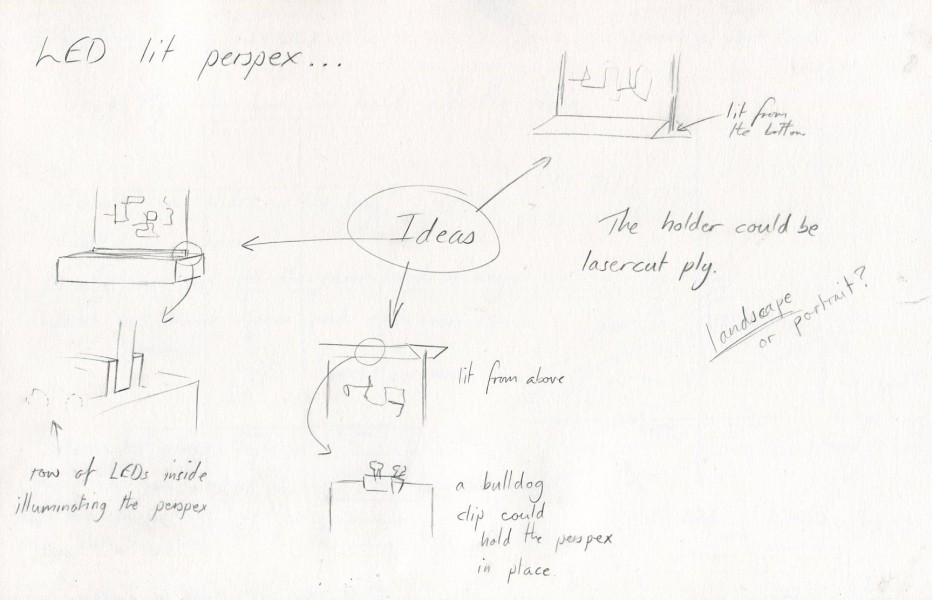 LED lit perspex...
lit from
the bottom
Ideas
The holder could be
lasercut ply.
landscape
or portrait?
lit from above
row of LEDs inside
illuminating the perspex
a bulldog
clip could
hold the perspex
in place.